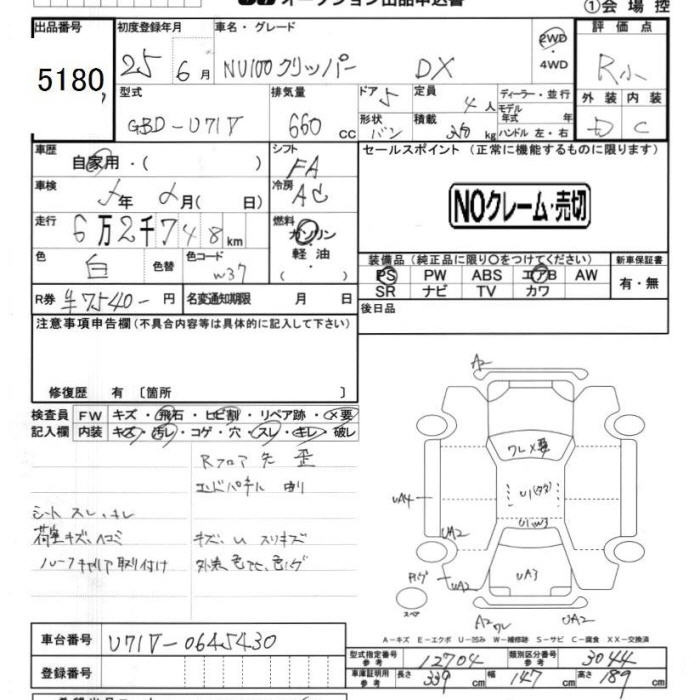 オークション出品申込書
①会場控
出品番号 初度登録年月 車名・グレード 評価点
5180 25 6月 NV100クリッパー DX 2WD・4WD R小
型式 排気量 ドア 5 定員 4人 ディーラー・並行 モデル 外装 内装
GBD-U71V 660cc 形状 バン 積載 kg 年式 年 ハンドル 左・右 D C
車歴 自家用・( ) シフト FA セールスポイント (正常に機能するものに限ります)
車検 年 月( 日) 冷房 AC
NOクレーム・売切
走行 6万2千748km 燃料 ガソリン・軽油・( )
色 白 色替 色コード W37
装備品(純正品に限り○をつけてください) 新車保証書
PS PW ABS エアB AW 有・無
SR ナビ TV カワ
R券 ¥7540-円 名変通知期限 月 日 後日品
注意事項申告欄(不具合内容等は具体的に記入して下さい)
修復歴 有〔箇所 〕
検査員 FW キズ・飛石・ヒビ割・リペア跡・×要
記入欄 内装 キズ・汚レ・コゲ・穴・スレ・キレ・破レ
Rフロア先歪
エンドパネル曲り
シートスレ、キレ
荷室キズ、ヘコミ
キズ、U スリキズ
ルーフキャリア取り付け
A2
ワレ×要
UA4
U1W3
UA2
UA2
UA3
UA2
スペア
A2ワレ
A-キズ E-エクボ U-凹み W-補修跡 S-サビ C-腐食 XX-交換済
車台番号 U71V-0645430
登録番号
型式指定番号 参考 12704 類別区分番号 参考 3044
車庫証明用 参考 長さ 339cm 幅 147cm 高さ 189cm